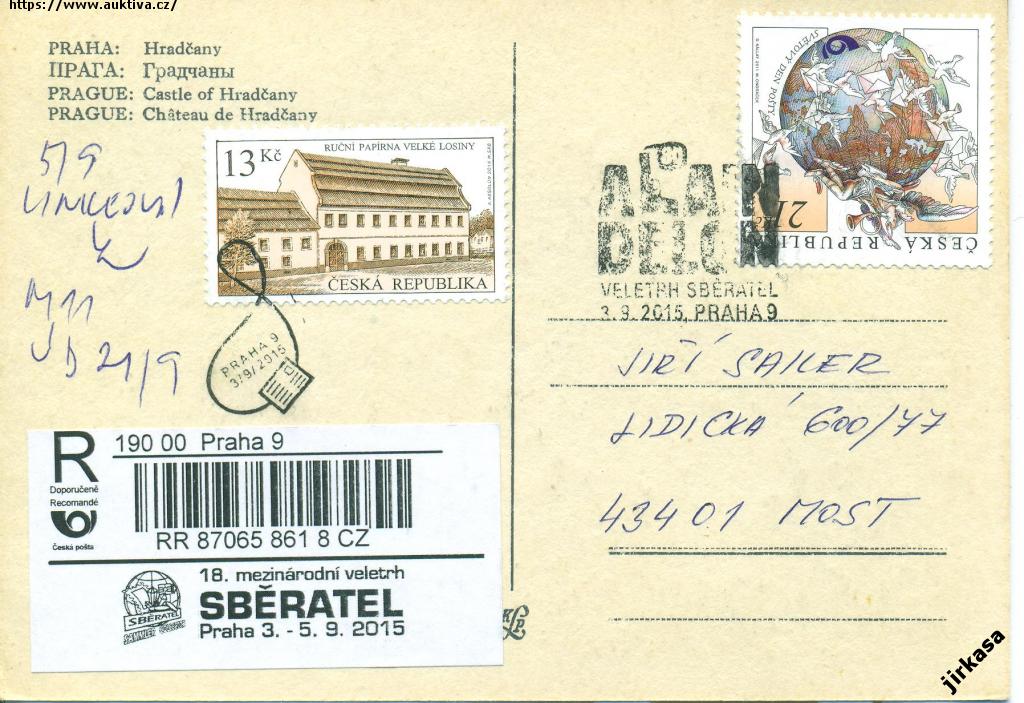 https://www.auktiva.cz/
PRAHA: Hradčany
ПРАГА: Градчаны
PRAGUE: Castle of Hradčany
PRAGUE: Château de Hradčany
5/9
M 11
21/9
13 Kč
RUČNÍ PAPÍRNA VELKÉ LOSINY
ČESKÁ REPUBLIKA
PRAHA 9
3/9/2015
SVĚTOVÝ DEN POŠTY
ČESKÁ REPUBLIKA
ALAIN
DELON
VELETRH SBĚRATEL
3.9.2015, PRAHA 9
JIŘÍ SAILER
LIDICKÁ 600/77
434 01 MOST
R
Doporučeně
Recomandé
Česká pošta
190 00 Praha 9
RR 87065 861 8 CZ
18. mezinárodní veletrh
SBĚRATEL
Praha 3. - 5. 9. 2015
SBĚRATEL
SAMMLER
jirkasa